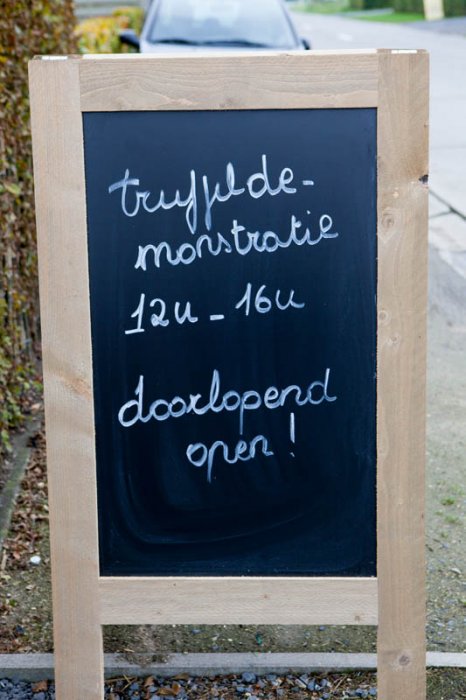 truffelde-
monstratie
12u - 16u
doorlopend
open!